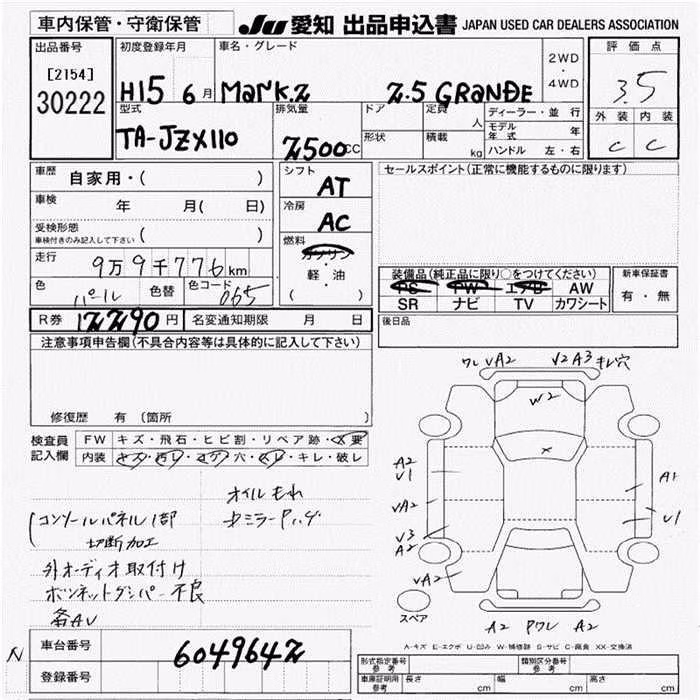 車内保管・守衛保管
JU 愛知 出品申込書 JAPAN USED CAR DEALERS ASSOCIATION
出品番号
[2154]
30222
初度登録年月
H15 6月
車名・グレード
Mark.2 2.5 GRANDE
2WD
・
4WD
評価点
3.5
外装 内装
C C
型式
TA-JZX110
排気量
2500CC
ドア
定員
人
形状
積載
kg
ディーラー・並行
モデル年式 年
ハンドル 左・右
車歴
自家用・( )
車検
年 月( 日)
受検形態
車検付きのみ記入して下さい ( )
走行
9万9千776km
色
パール
色替
色コード
065
シフト
AT
冷房
AC
燃料
ガソリン
・
軽・油
( )
セールスポイント(正常に機能するものに限ります)
装備品(純正品に限り○をつけてください)
PS PW エアB AW
SR ナビ TV カワシート
新車保証書
有・無
R券 12290円
名変通知期限 月 日
後日品
注意事項申告欄(不具合内容等は具体的に記入して下さい)
修復歴 有 (箇所 )
検査員
記入欄
FW キズ・飛石・ヒビ割・リペア跡・X要
内装 キズ・汚レ・コゲ・穴・スレ・キレ・破レ
オイルもれ
コンソールパネル1部
切断加工
外オーディオ取付け
ボンネットダンパー不良
各AU
ワレ VA2 V2 A3 キレ穴
W2
X
A2
V1
VA2
V3
A2
VA2
A1
U1
スペア
A2 Pワレ A2
A-キズ E-エクボ U-凹み W-補修跡 S-サビ C-腐食 XX-交換済
N
車台番号
6049642
登録番号
形式指定番号
参考
類別区分番号
参考
車庫証明用
参考
長さ cm 幅 cm 高さ cm